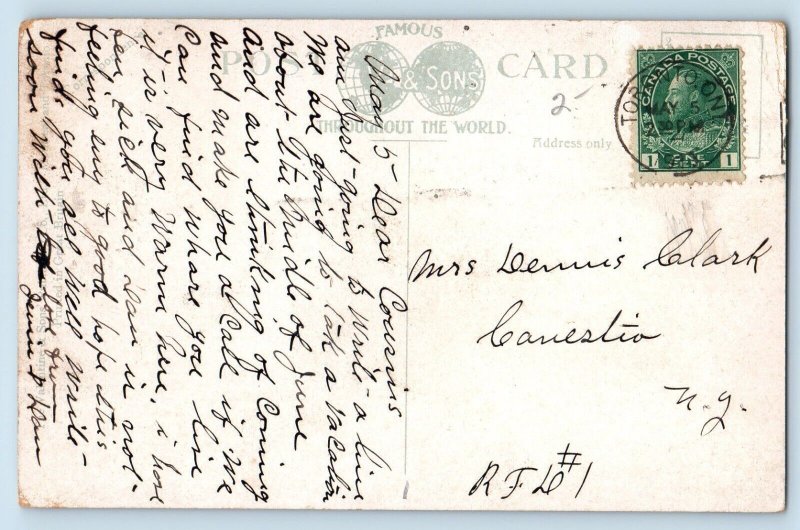 FAMOUS
POST CARD
& SONS
THROUGHOUT THE WORLD.
Address only
2-
CANADA POSTAGE
1 1
TORONTO, ONT.
MAY 5
PM
May 5 Dear Cousins
am just going to write a line
We are going to tak a vacation
about the midle of June
and are thinking of coming
and make you a call if we
can find where you live
it is very warm here, i have
ben sick and Dan is not
feeling any to good hope this
finds you all well write
soon with love from
& Dan
Mrs Dennis Clark
Canestio
N.Y.
RFD #1